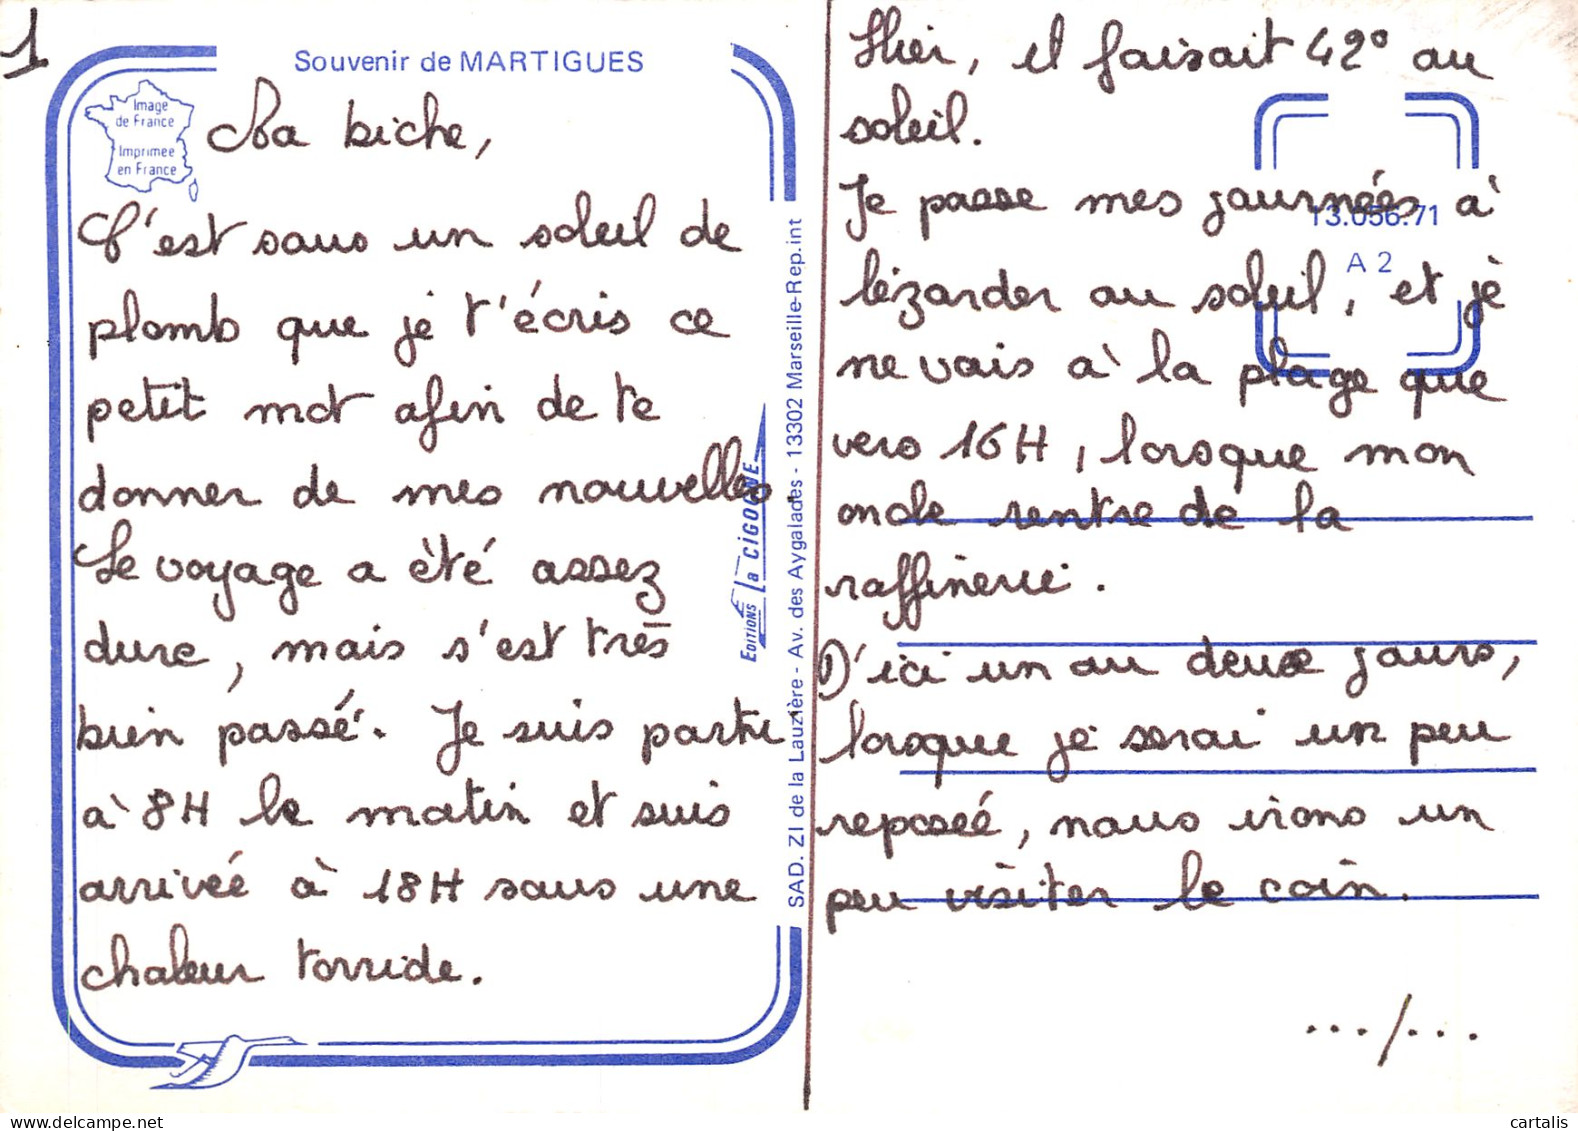 1
Souvenir de MARTIGUES
Image
de France
Imprimée
en France
Ma biche,
C'est sous un soleil de
plomb que je t'écris ce
petit mot afin de te
donner de mes nouvelles.
Le voyage a été assez
dure, mais s'est très
bien passé. Je suis partie
à 8H le matin et suis
arrivée à 18H sous une
chaleur torride.
EDITIONS La CIGOGNE
SAD. ZI de la Lauzière - Av. des Aygalades - 13302 Marseille-Rep.int
Hier, il faisait 42° au
soleil.
13.056.71
A 2
Je passe mes journées à
lézarder au soleil, et je
ne vais à la plage que
vers 16H, lorsque mon
oncle rentre de la
raffinerie.
D'ici un ou deux jours,
lorsque je serai un peu
reposée, nous irons un
peu visiter le coin.
.../...
cartalis
www.delcampe.net